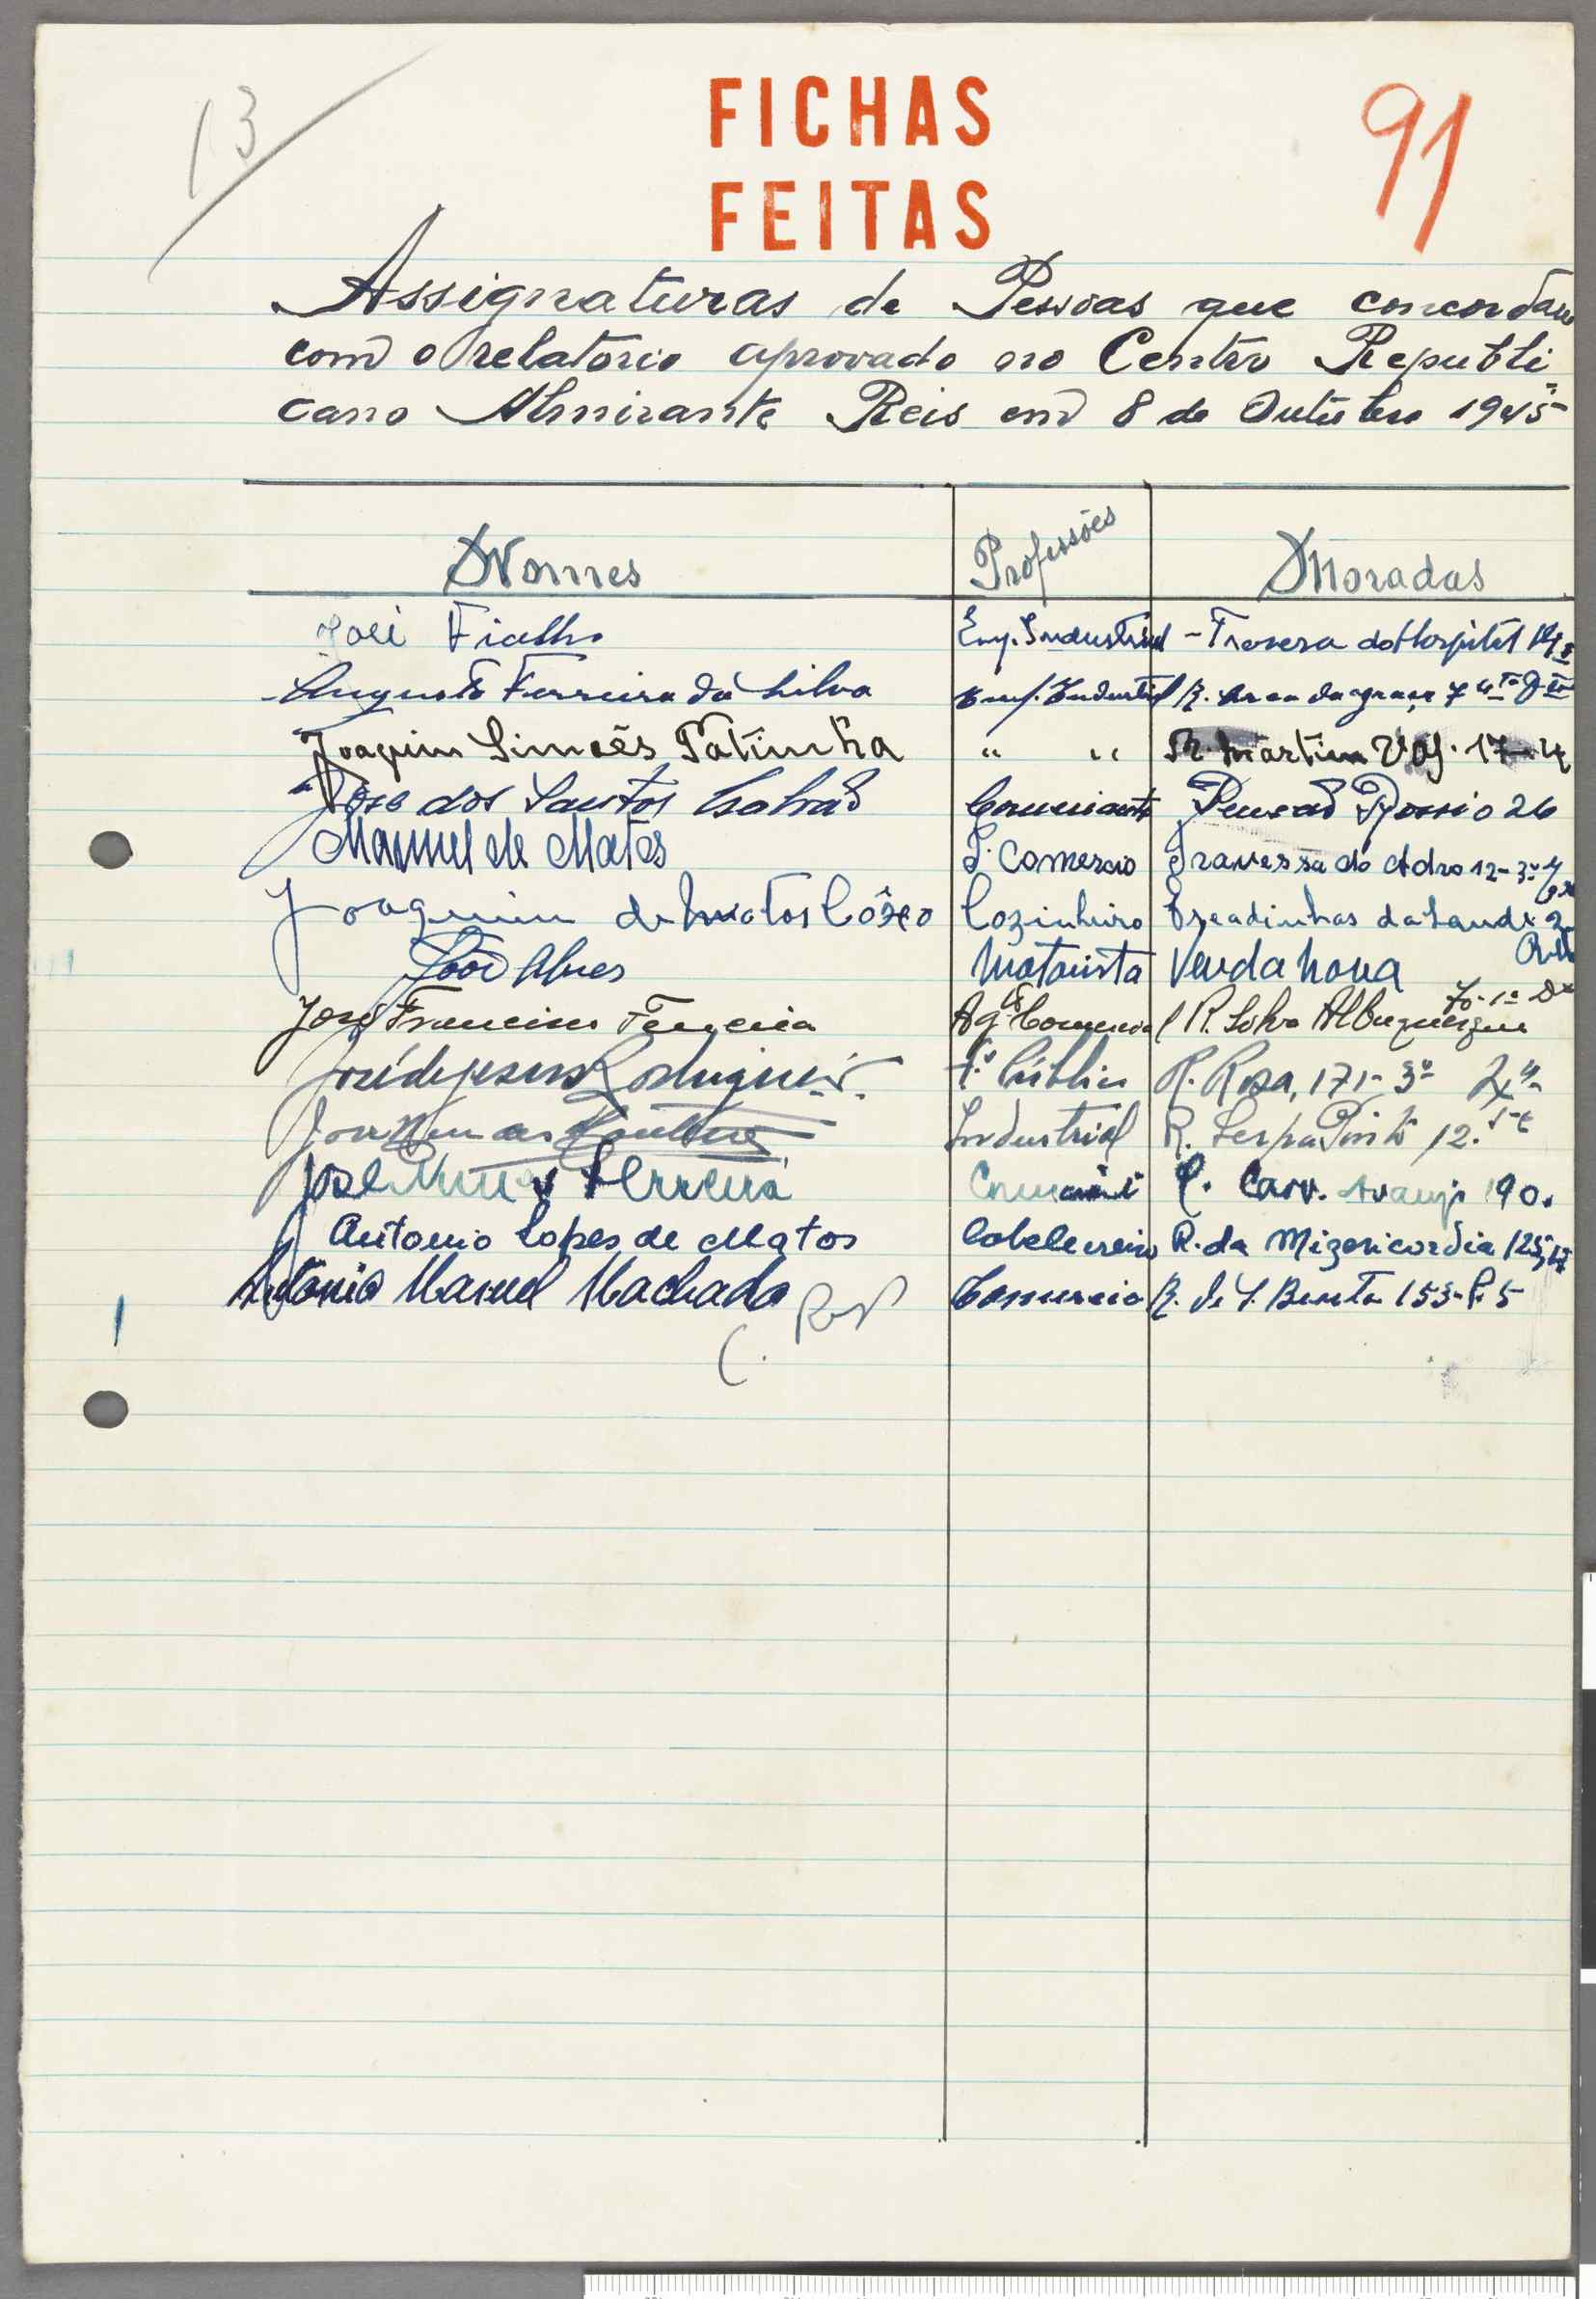 13
FICHAS
FEITAS
91
Assignaturas de Pessoas que concordam
com o relatorio aprovado no Centro Republi
cano Almirante Reis em 8 de Outubro 1945
Nomes Professões Moradas
José Fialho Emp. Industrial - Travesa do Hospital
Augusto Ferreira da Silva Emp. Industrial R. da graça 7 4to Dto
Joaquim Simoēs Fatinha " " R. Martim Vaz. 17-4
José dos Santos Comerciante Pensão Rossio 26
Manuel de Matos E. Comercio Travessa do Adro 12-3º
Joaquim de Matos Côxo Cozinheiro Escadinhas da Saude 2
João Alves Motorista Venda Nova
José Francisco Ag te Comercial R. Silva Albuquerque 70-1º D
José de Jesus Rodrigues Fº Público R. Rosa, 171-3º
Industrial R. Serpa Pinto 12.
José Ferreira C. Carv. Araujo 190.
Antonio Lopes de Matos Cabelereiro R. da Mizericordia 125
António Manuel Machado Comercio R. de S. Bento 153-